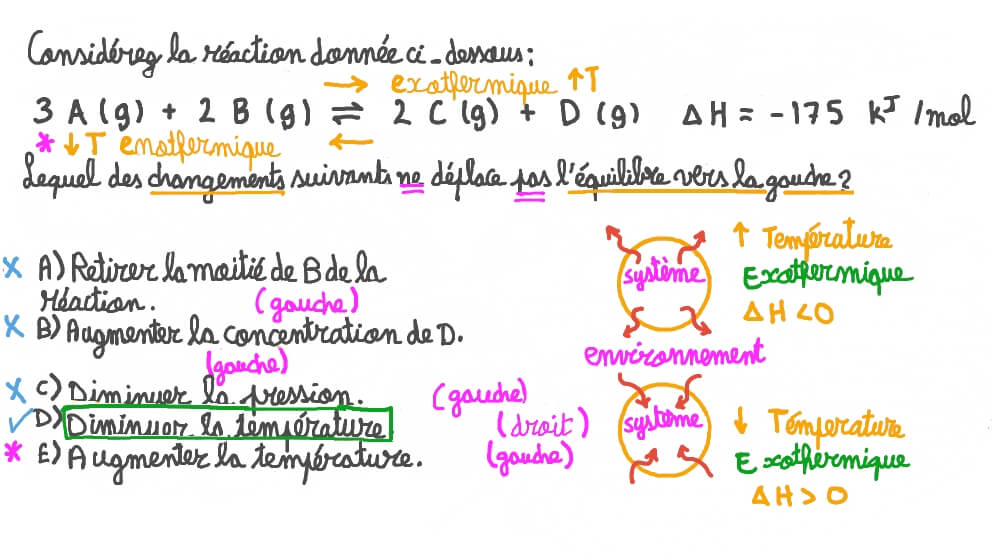 Considérez la réaction donnée ci-dessous:
→ exothermique ↑T
3 A (g) + 2 B (g) ⇌ 2 C (g) + D (g) ΔH = -175 kJ /mol
* ↓ T enothermique ←
Lequel des changements suivants ne déplace pas l'équilibre vers la gauche?
x A) Retirer la moitié de B de la
réaction. (gauche)
x B) Augmenter la concentration de D.
(gauche)
x C) Diminuer la pression. (gauche)
✓ D) Diminuer la température (droit)
* E) Augmenter la température. (gauche)
système
↑ Température
Exothermique
ΔH < 0
environnement
système
↓ Température
Exothermique
ΔH > 0